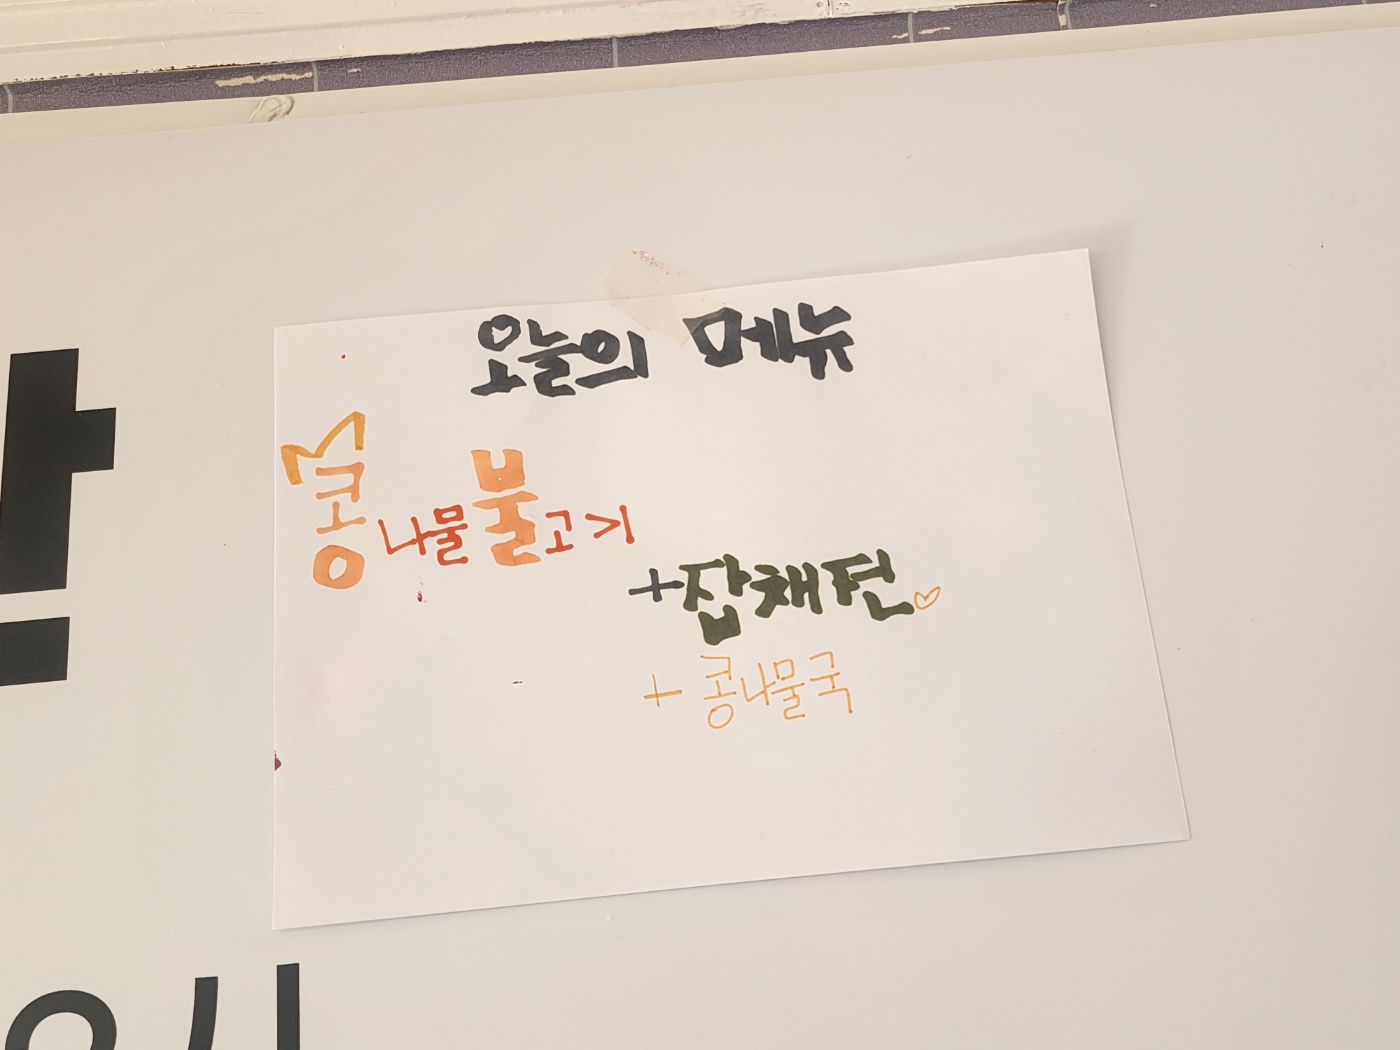 오늘의 메뉴
콩나물불고기
+잡채전♡
+ 콩나물국